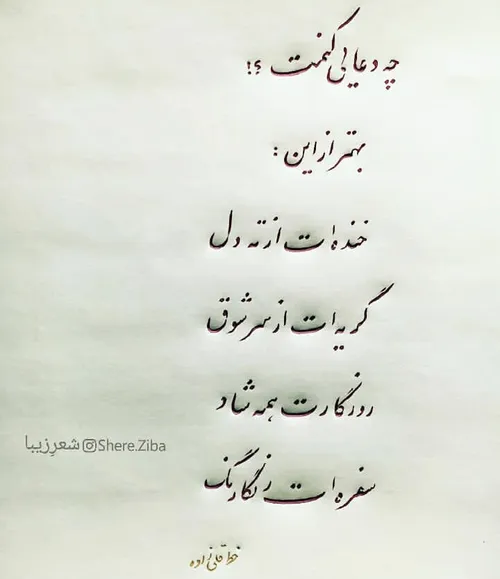 چه دعایی کنمت ؟!
بهتر از این :
خنده ات از ته دل
گریه ات از سر شوق
روزگارت همه شاد
سفره ات رنگارنگ
شعرِزیبا Shere.Ziba
خط قلی زاده